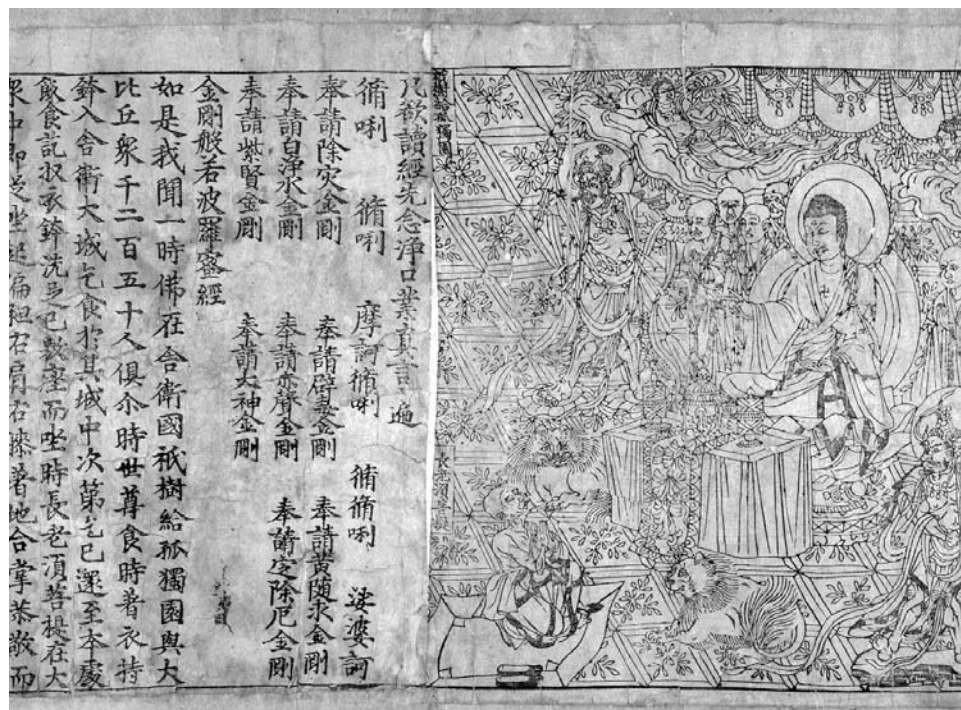 祇樹給孤獨園
長老須菩提
凡欲讀經先念淨口業真言 遍
脩唎 脩唎 摩訶脩唎 脩脩唎 娑婆訶
奉請除灾金剛 奉請辟毒金剛 奉請黃隨求金剛
奉請白淨水金剛 奉請赤聲金剛 奉請定除厄金剛
奉請紫賢金剛 奉請大神金剛
金剛般若波羅蜜經
如是我聞一時佛在舍衛國祇樹給孤獨園與大
比丘衆千二百五十人俱尒時世尊食時着衣持
鉢入舍衛大城乞食於其城中次第乞已還至本處
飯食訖収衣鉢洗足已敷座而坐時長老須菩提在大
衆中即從坐起偏袒右肩右膝着地合掌恭敬而